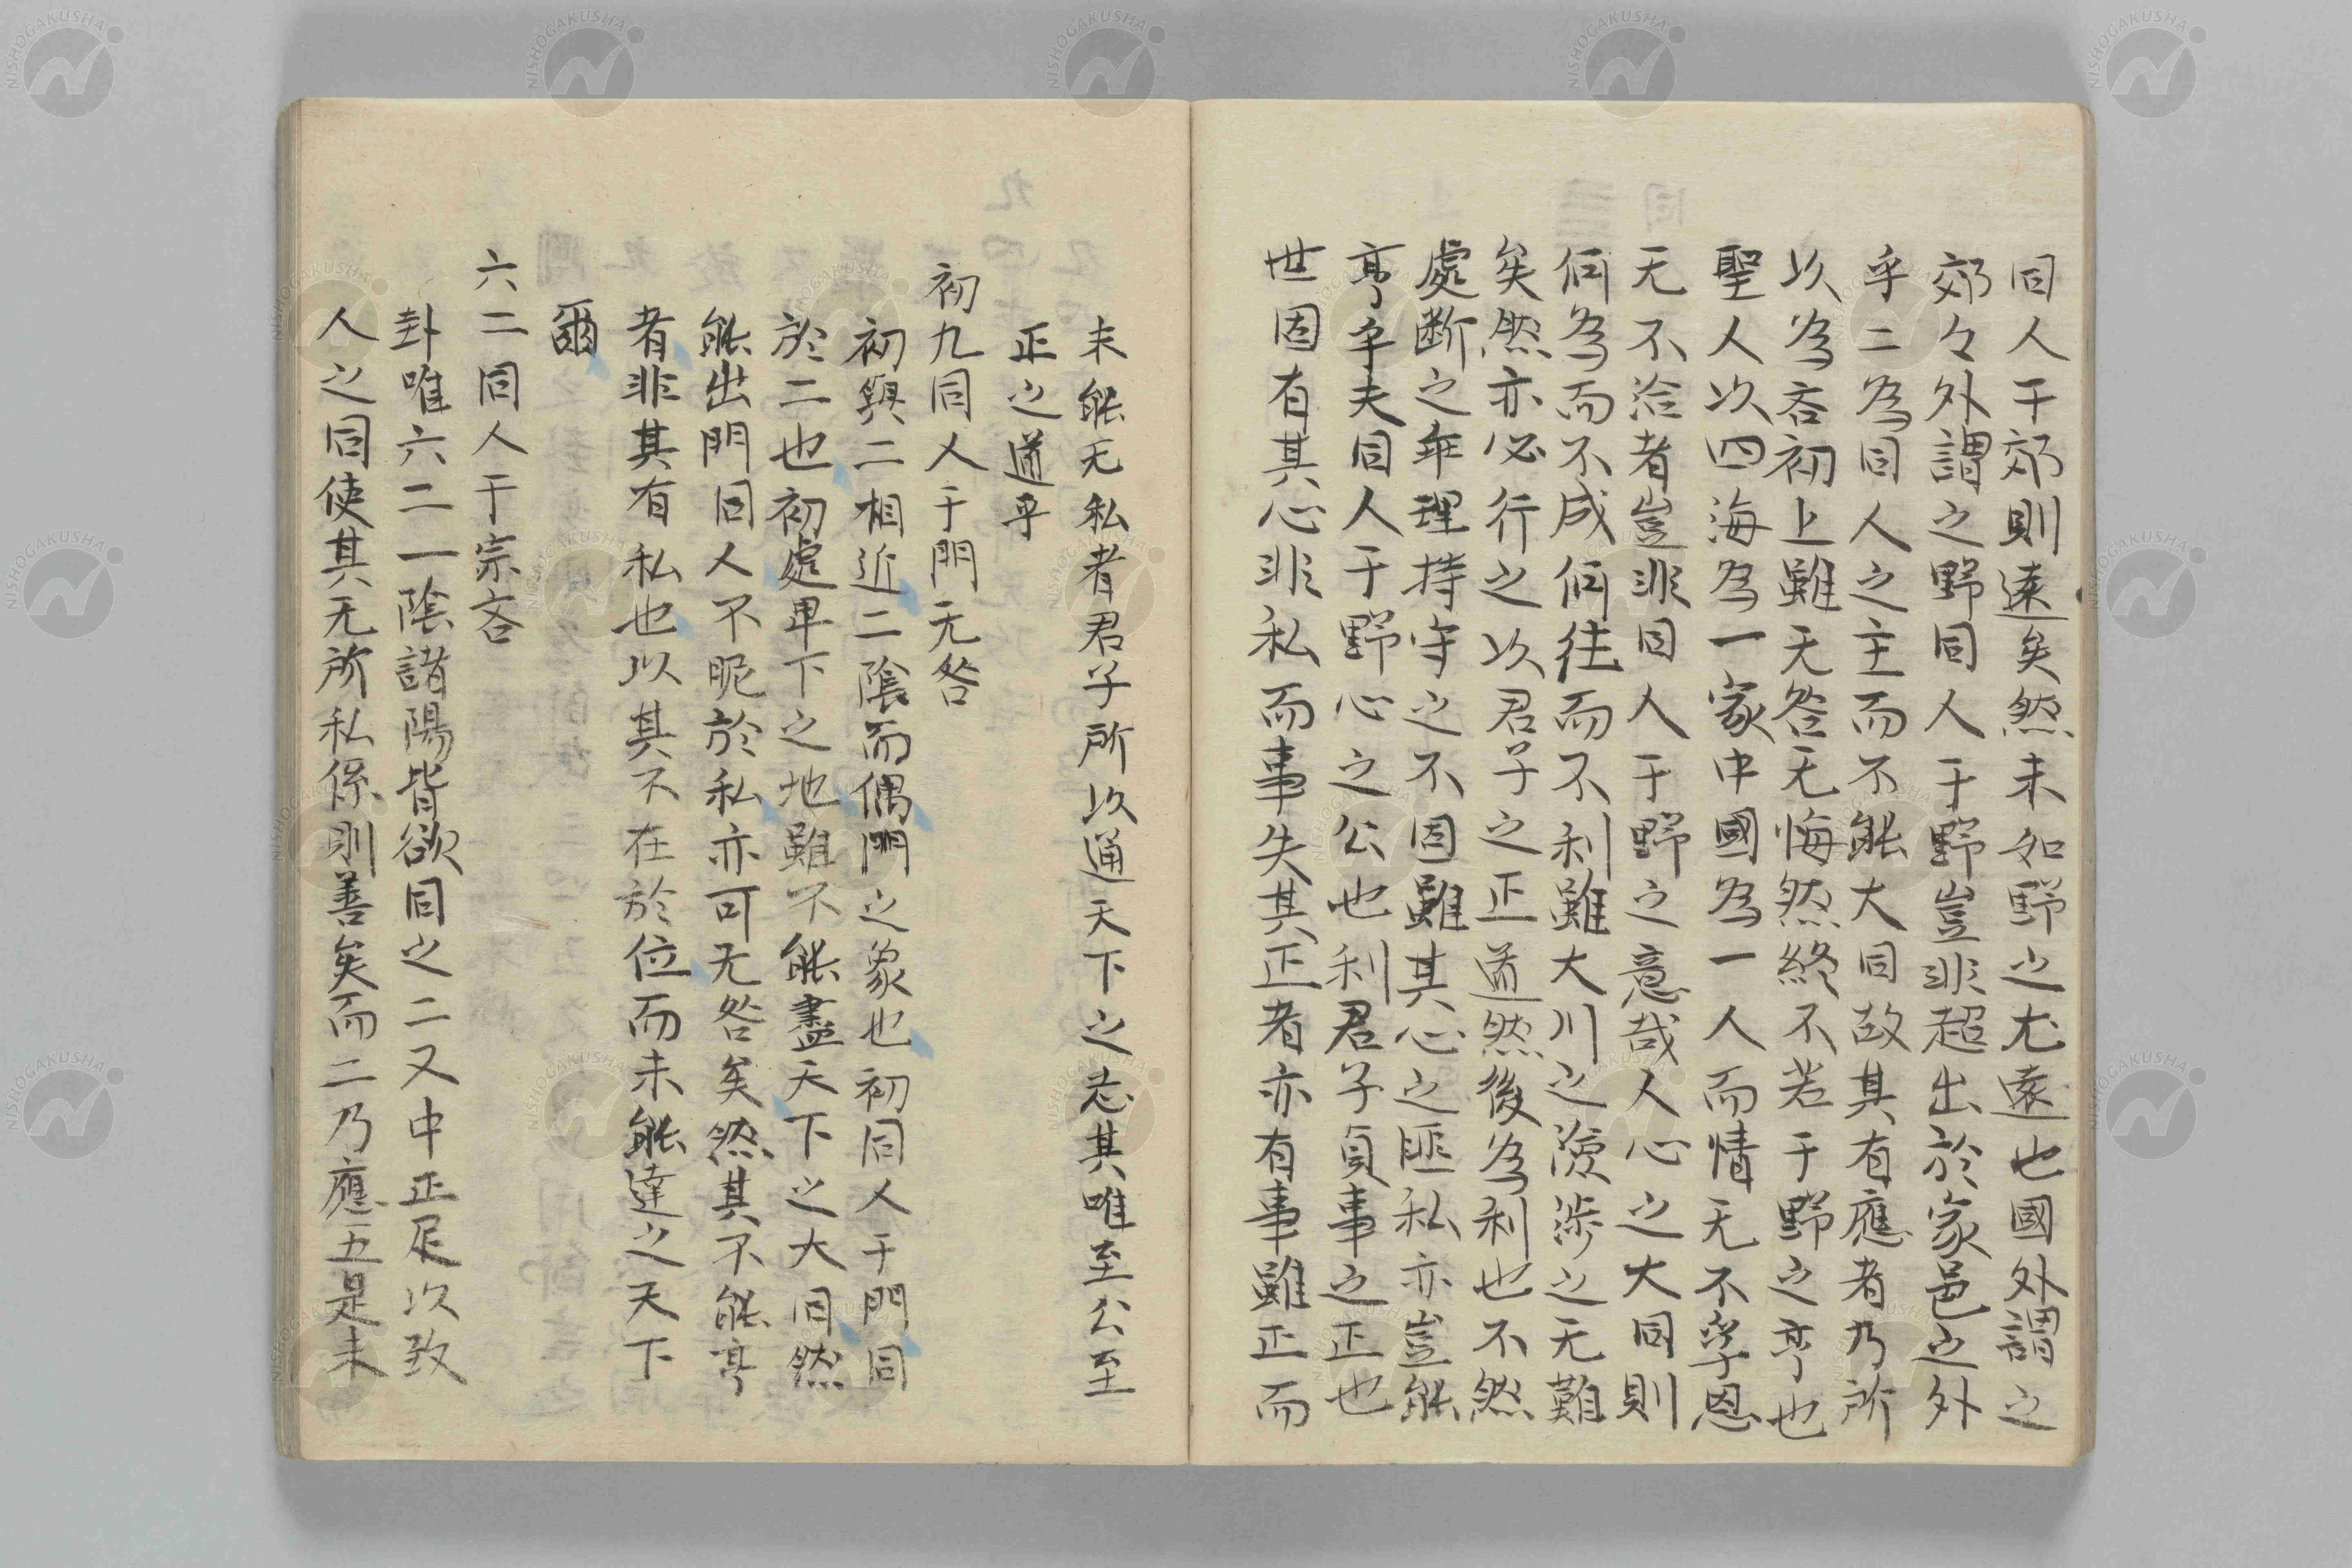 同人于郊則遠矣然未如野之尤遠也國外謂之
郊々外謂之野同人于野豈非超出於家邑之外
乎二為同人之主而不能大同故其有應者乃所
以為吝初上雖无咎无悔然終不若于野之亨也
聖人以四海為一家中國為一人而情无不孚恩
无不洽者豈非同人于野之意哉人心之大同則
何為而不成何往而不利雖大川之險渉之无難
矣然亦必行之以君子之正道然後為利也不然
處断之乖理持守之不固雖其心之匪私亦豈能
亨乎夫同人于野心之公也利君子貞事之正也
世固有其心非私而事失其正者亦有事雖正而
未能无私者君子所以通天下之志其唯至公至
正之道乎
初九同人于門无咎
初與二相近二陰而偶門之象也初同人于門同
於二也初處卑下之地雖不能盡天下之大同然
能出門同人不昵於私亦可无咎矣然其不能亨
者非其有私也以其不在於位而未能達之天下
爾
六二同人于宗吝
卦唯六二一陰諸陽皆欲同之二又中正足以致
人之同使其无所私係則善矣而二乃應五是未
NISHOGAKUSHA